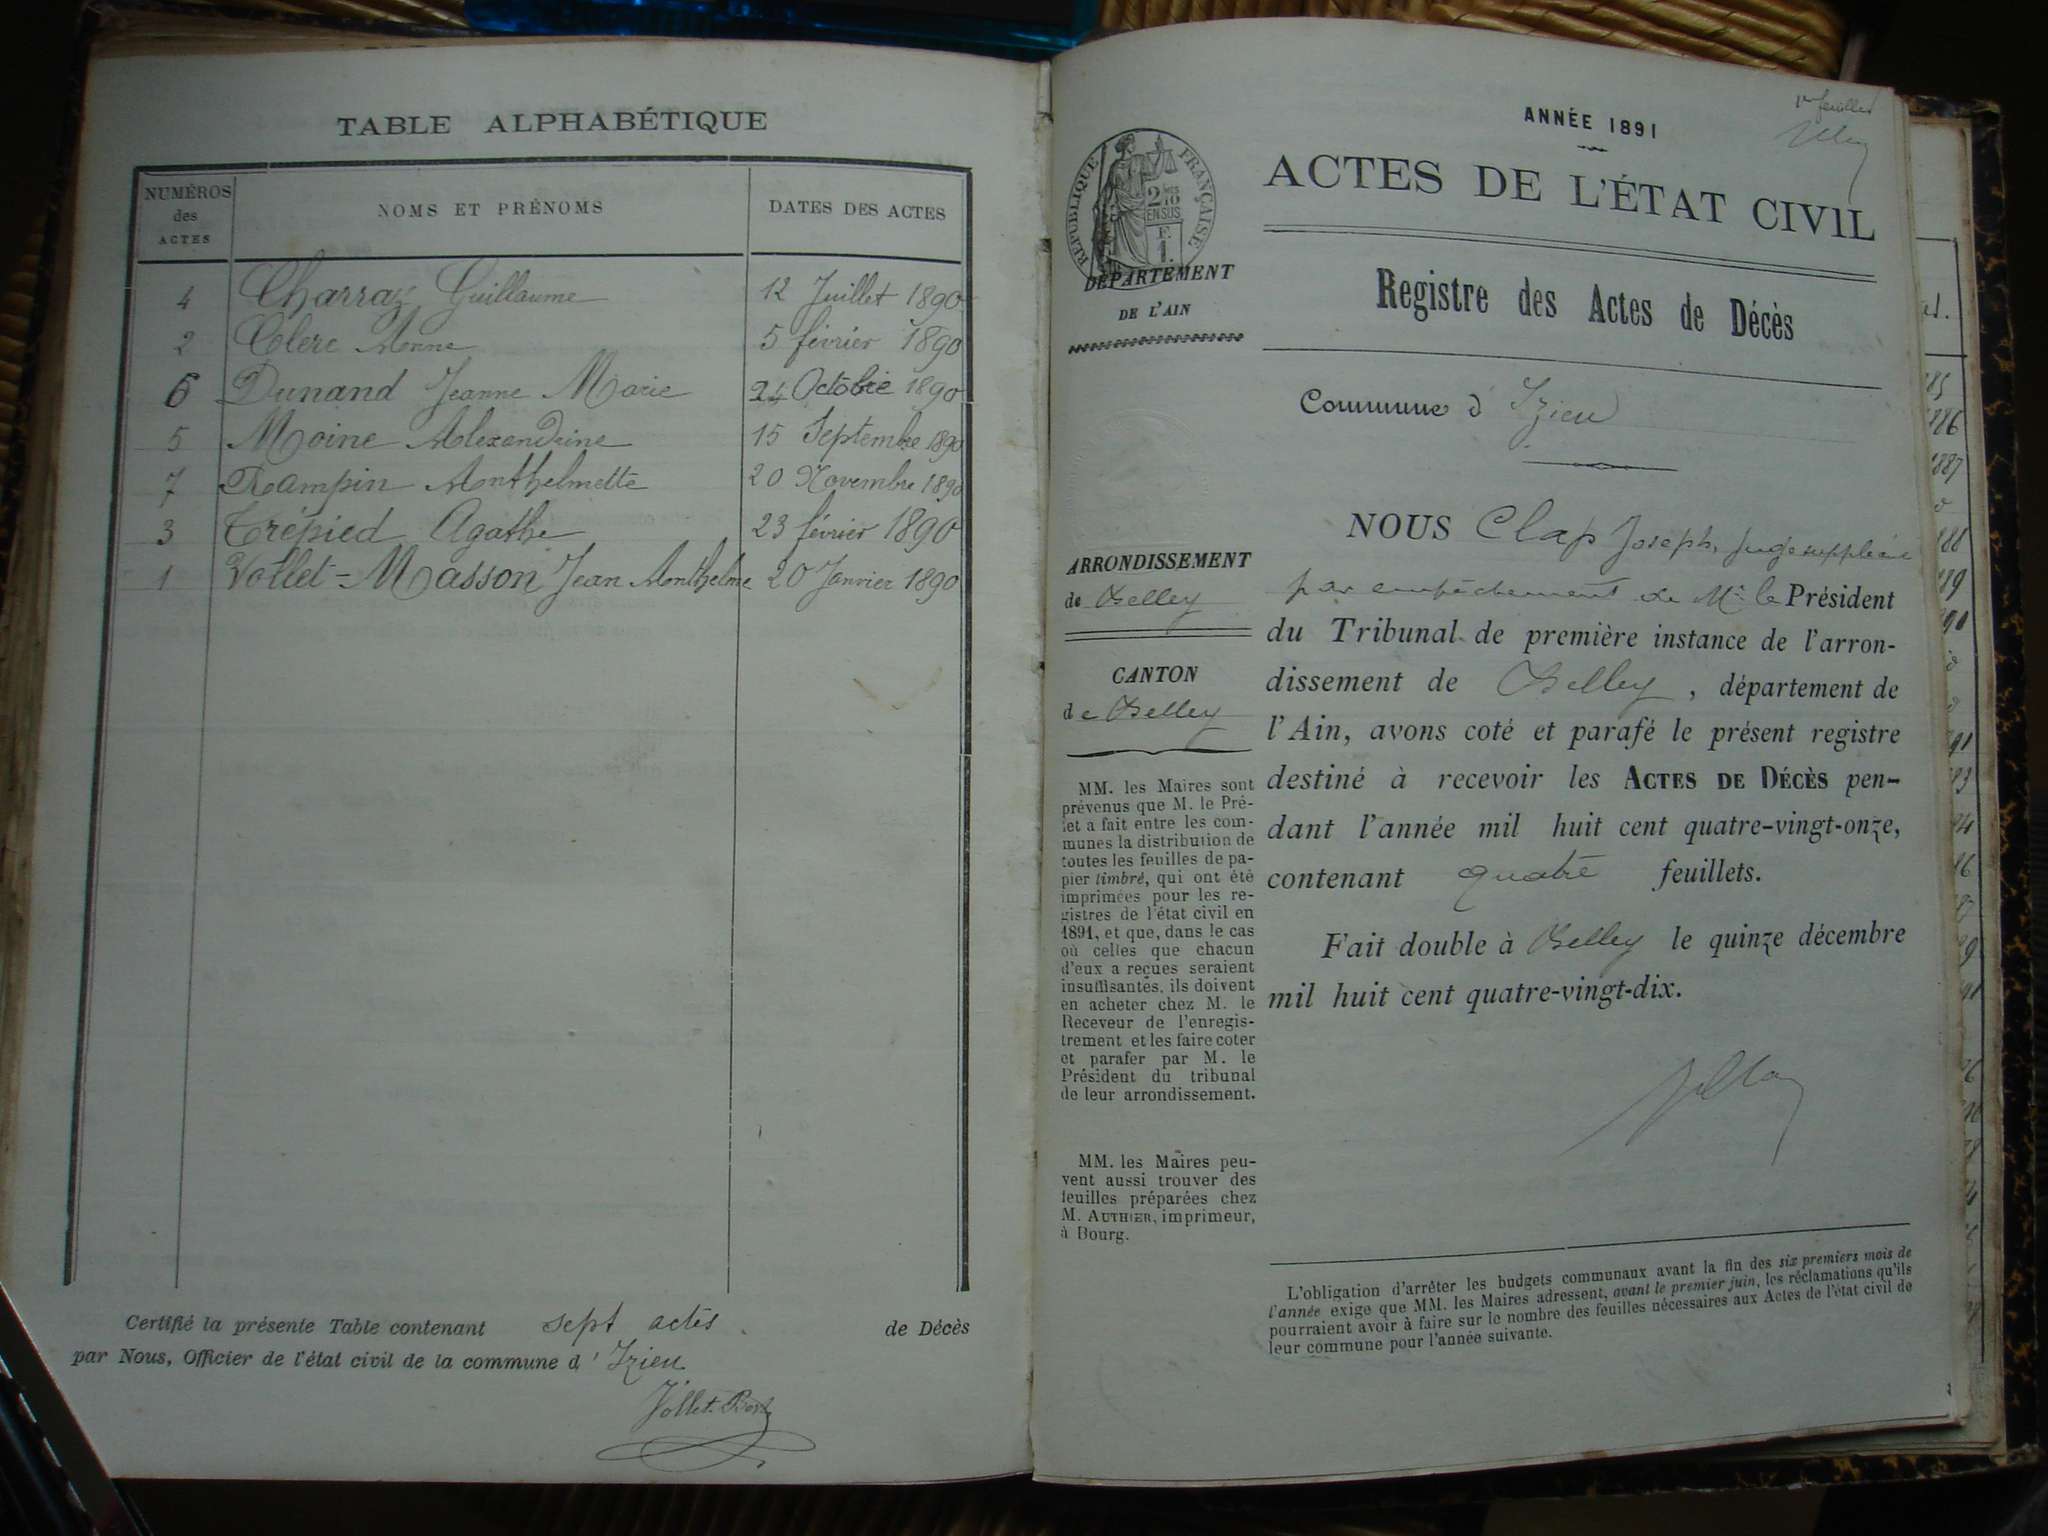 TABLE ALPHABÉTIQUE
NUMÉROS des ACTES NOMS ET PRÉNOMS DATES DES ACTES
4 Charraz Guillaume 12 Juillet 1890
2 Clerc Anne 5 février 1890
6 Dunand Jeanne Marie 24 Octobre 1890
5 Moine Alexandrine 15 Septembre 1890
7 Rampin Anthelmette 20 Novembre 1890
3 Trépied Agathe 23 février 1890
1 Vollet-Masson Jean Anthelme 20 Janvier 1890
Certifié la présente Table contenant sept actes de Décès
par Nous, Officier de l'état civil de la commune d'Izieu
ANNÉE 1891
1er feuillet
ACTES DE L'ÉTAT CIVIL
RÉPUBLIQUE FRANÇAISE
2 10
EN SUS
F.
1.
DÉPARTEMENT
DE L'AIN
Registre des Actes de Décès
Commune d'Izieu
NOUS Clap Joseph, juge suppléant
par empêchement de Mr le Président
du Tribunal de première instance de l'arron-
dissement de Belley, département de
l'Ain, avons coté et parafé le présent registre
destiné à recevoir les ACTES DE DÉCÈS pen-
dant l'année mil huit cent quatre-vingt-onze,
contenant quatre feuillets.
Fait double à Belley le quinze décembre
mil huit cent quatre-vingt-dix.
ARRONDISSEMENT
de Belley
CANTON
de Belley
MM. les Maires sont
prévenus que M. le Pré-
fet a fait entre les com-
munes la distribution de
toutes les feuilles de pa-
pier timbré, qui ont été
imprimées pour les re-
gistres de l'état civil en
1891, et que, dans le cas
où celles que chacun
d'eux a reçues seraient
insuffisantes, ils doivent
en acheter chez M. le
Receveur de l'enregis-
trement et les faire coter
et parafer par M. le
Président du tribunal
de leur arrondissement.
MM. les Maires peu-
vent aussi trouver des
feuilles préparées chez
M. AUTHIER, imprimeur,
à Bourg.
L'obligation d'arrêter les budgets communaux avant la fin des six premiers mois de
l'année exige que MM. les Maires adressent, avant le premier juin, les réclamations qu'ils
pourraient avoir à faire sur le nombre des feuilles nécessaires aux Actes de l'état civil de
leur commune pour l'année suivante.